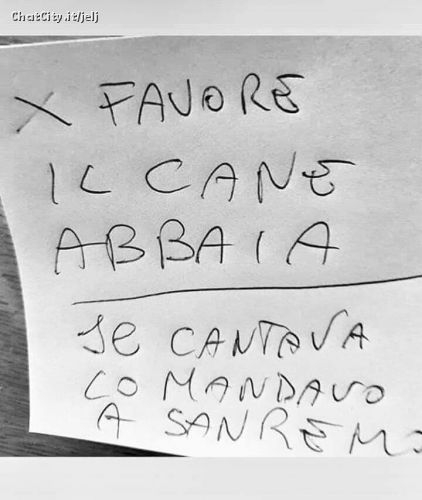 ChatCity.it/jelj
X FAVORE
IL CANE
ABBAIA
SE CANTAVA
LO MANDAVO
A SANREMO